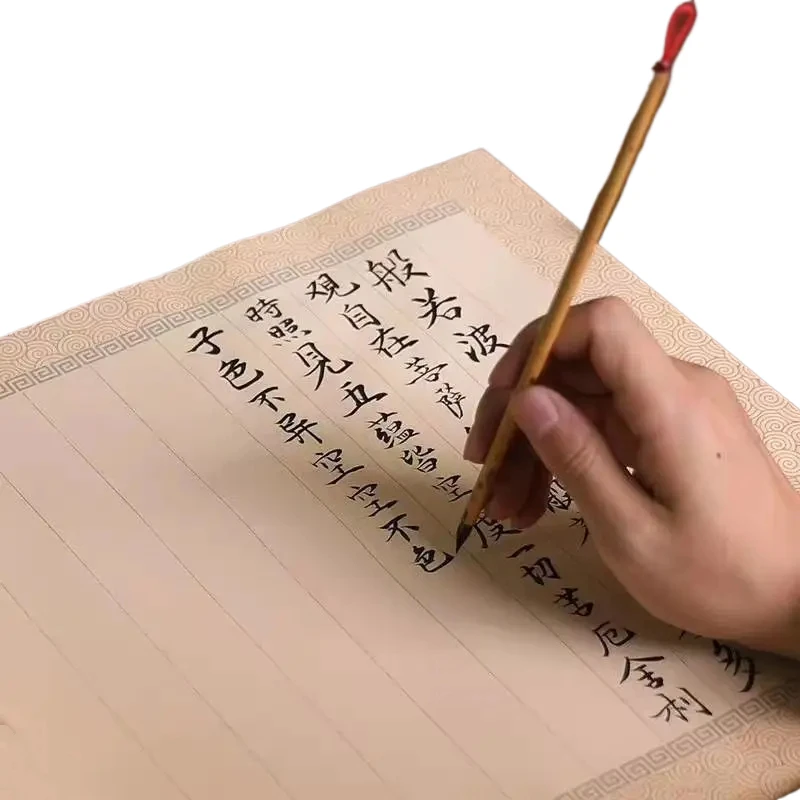 般若波多
觀自在菩薩般
時照見五蘊皆空度一切苦厄舍利
子色不异空空不色